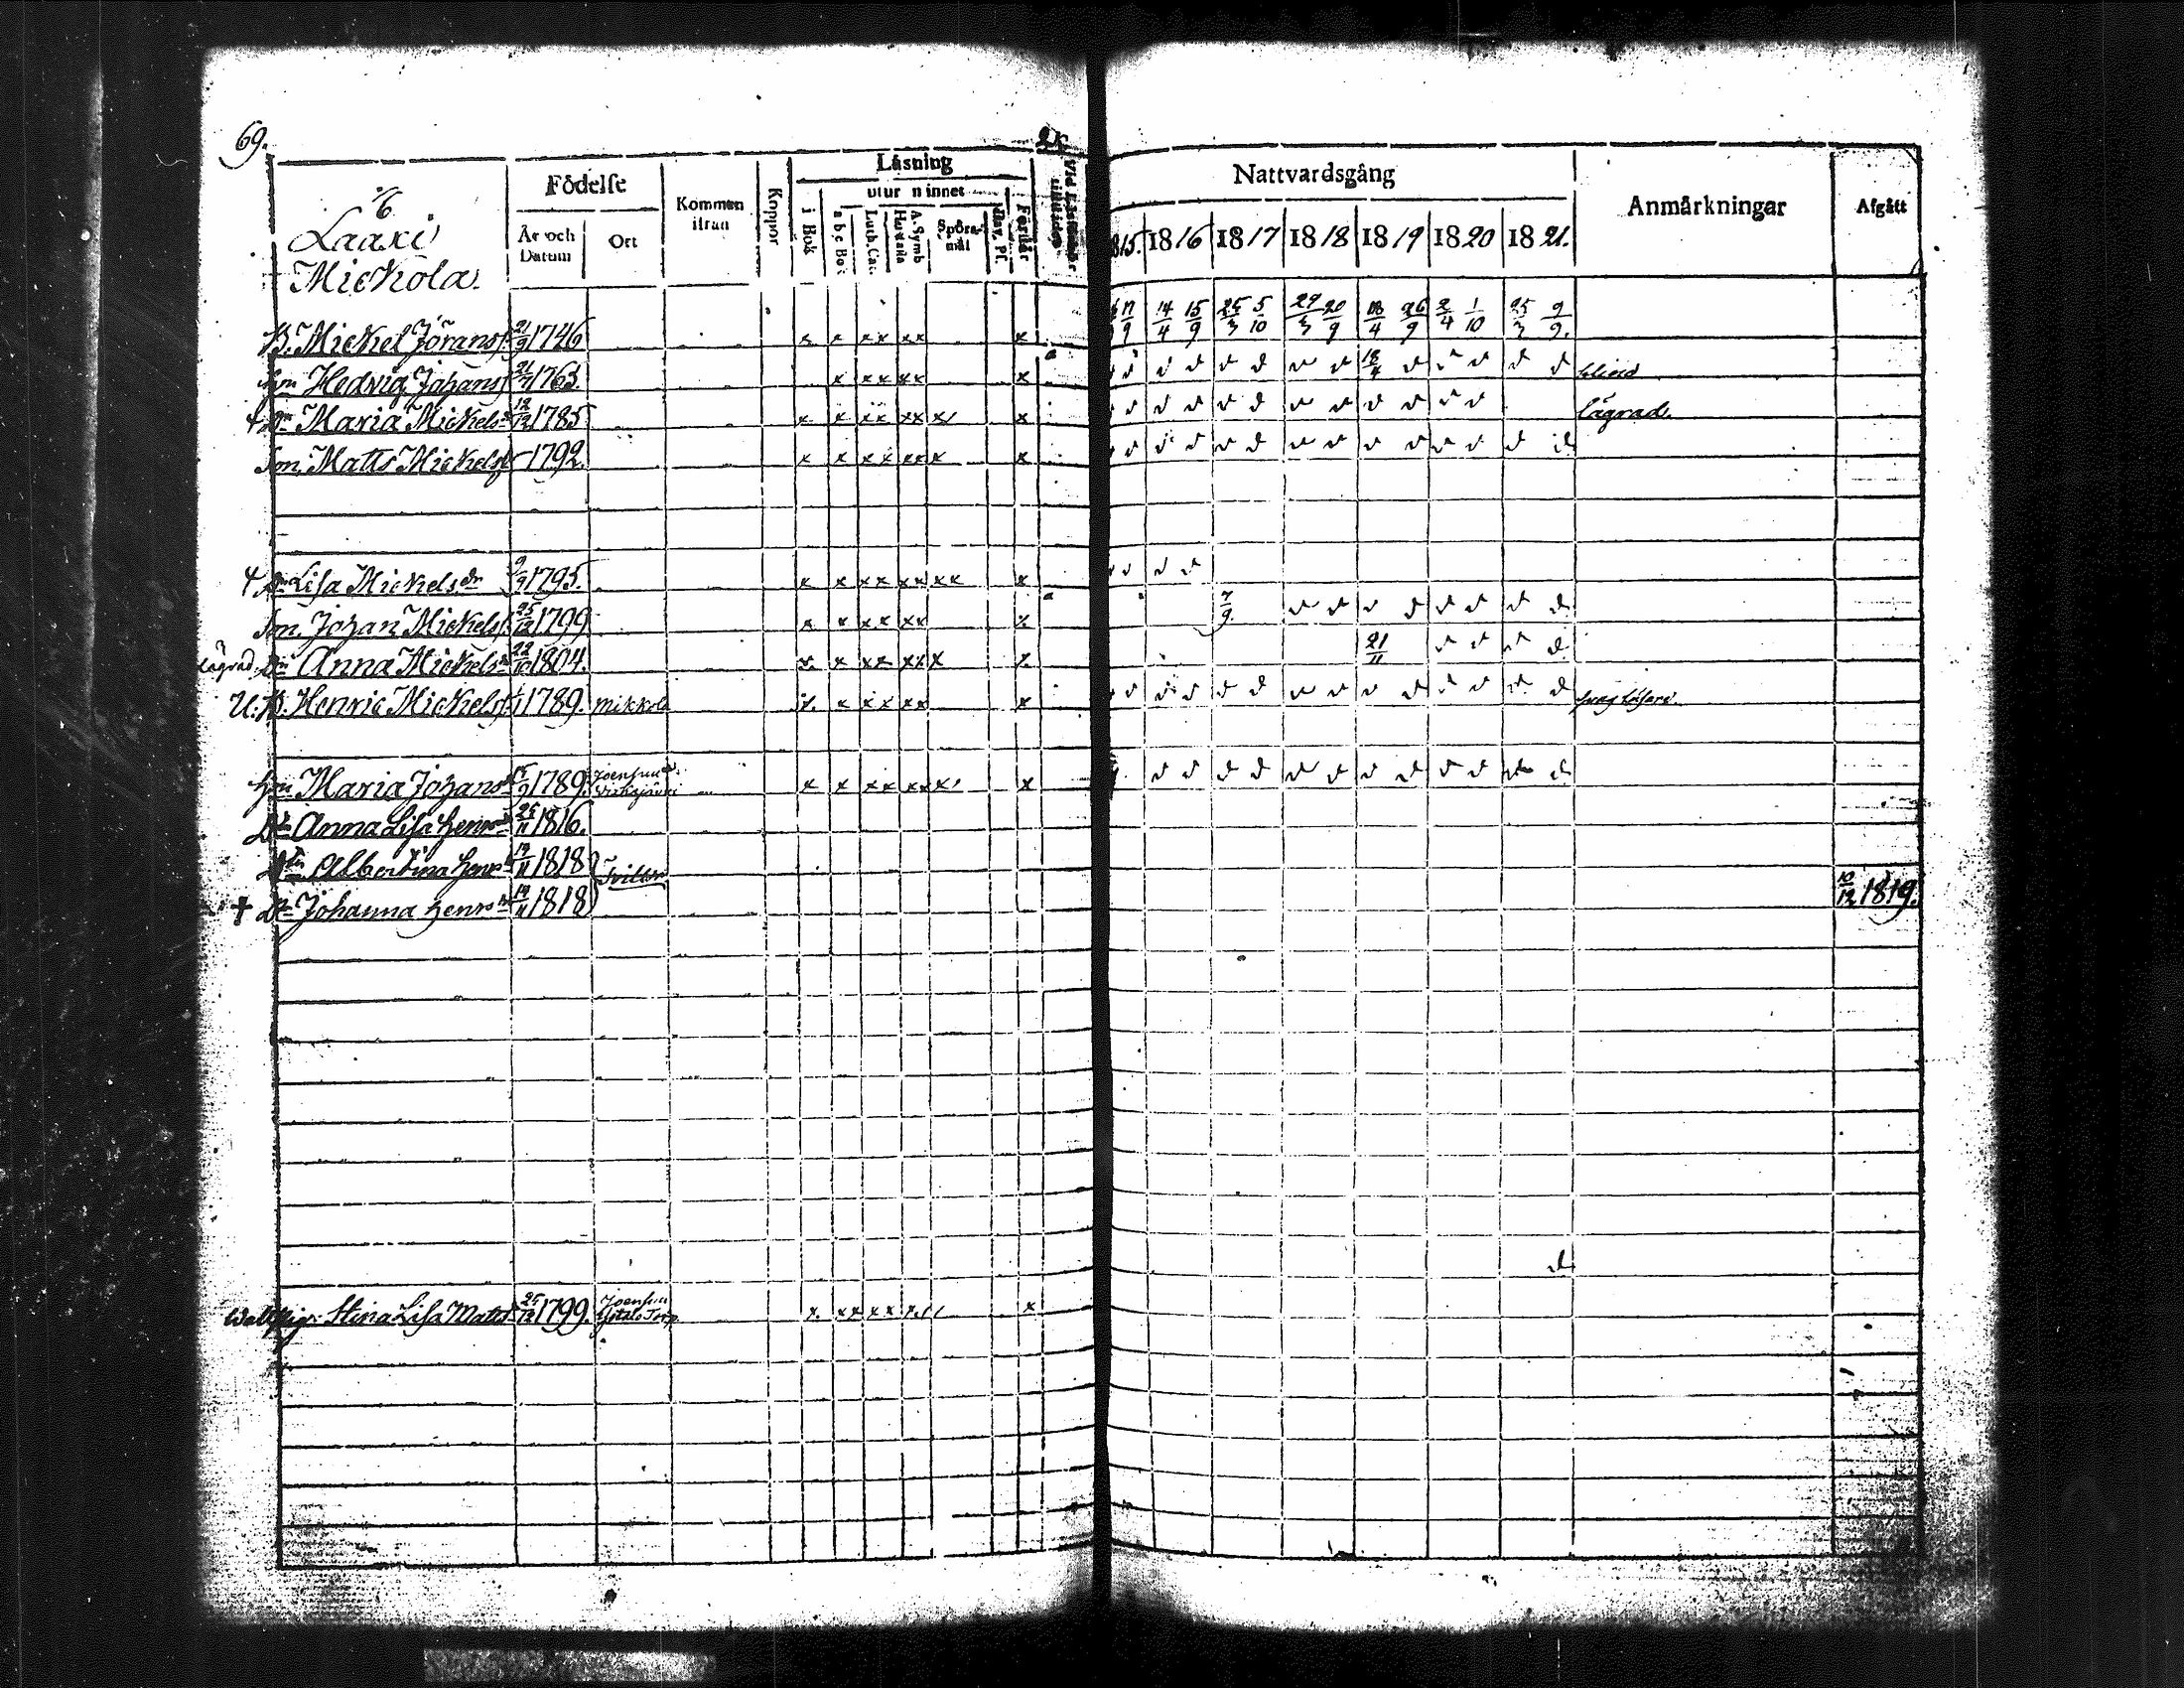 69.
Laaxi
Mickola.
Födelse
År och Datum
Ort
Kommen ifrån
Koppor
Läsning
i Bok
utur minnet
a b c Bok
Luth. Cat.
A. Symb Hustafla
Spörsmål
Dav. Pf.
Förstår
Nattvardsgång
1815. 1816 1817 1818 1819 1820 1821.
Anmärkningar
Afgått
17/9 14/4 15/9 25/3 5/10 29/3 20/9 18/4 26/9 2/4 1/10 25/3 9/9.
B. Mickel Jöransf. 21/9 1746
Hn Hedvig Johansf 21/4 1763. 18/4
Dr Maria Mickelsdr 12/12 1785 lägrad.
Son. Matts Mickelsf 1792.
Dr Lisa Mickelsdr 9/9 1795.
Son. Johan Mickelsf. 25/12 1799 7/9.
lägrad. Dr Anna Mickelsdr 22/10 1804. 21/11
U. B. Henric Mickelsf. 1/1 1789. mikkola
Hn Maria Johansdr 1789. Joensuu
Dr Anna Lisa Henrsdr 25/11 1816.
Dr Albertina Henrsdr 19/11 1818
Tvillin
† Dr Johanna Henrsdr 19/11 1818 10/12 1819.
pig. Stina Lisa Matsd 25/12 1799. Joensuu